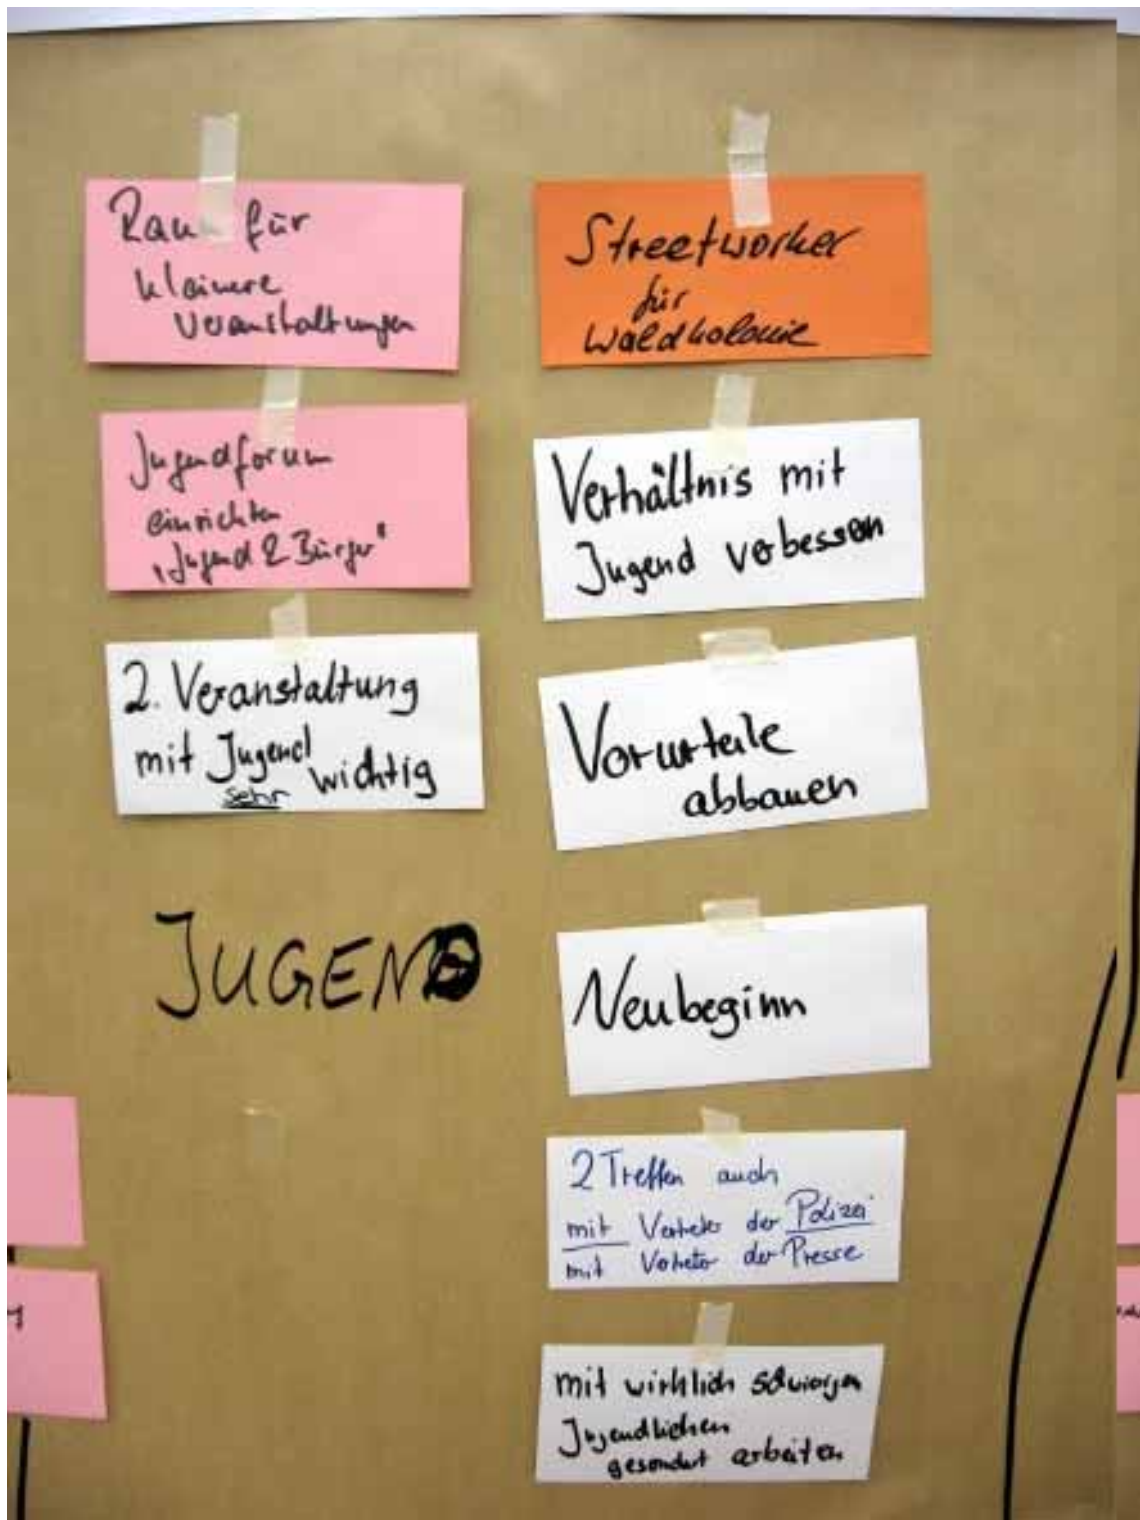 Raum für
kleinere
Veranstaltungen
Jugendforum
einrichten
"Jugend & Bürger"
2. Veranstaltung
mit Jugend wichtig
sehr
JUGEND
Streetworker
für
Waldkolonie
Verhältnis mit
Jugend verbessern
Vorurteile
abbauen
Neubeginn
2 Treffen auch
mit Vertreter der Polizei
mit Vertreter der Presse
mit wirklich schwierigen
Jugendlichen
gesondert arbeiten